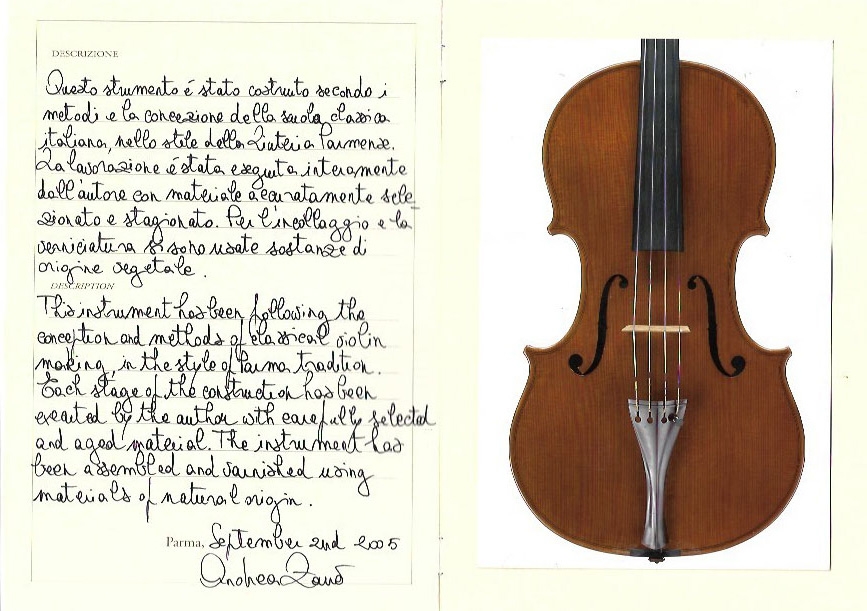 DESCRIZIONE
Questo strumento é stato costruito secondo i
metodi e la concezione della scuola classica
italiana, nello stile della Liuteria Parmense.
La lavorazione é stata eseguita interamente
dall'autore con materiale accuratamente sele-
zionato e stagionato. Per l'incollaggio e la
verniciatura si sono usate sostanze di
origine vegetale.
DESCRIPTION
This instrument has been following the
conception and methods of classical violin
making, in the style of Parma tradition.
Each stage of the construction has been
executed by the author with carefully selected
and aged material. The instrument has
been assembled and varnished using
materials of natural origin.
Parma, September 2nd 2005
Andrea Zanrè